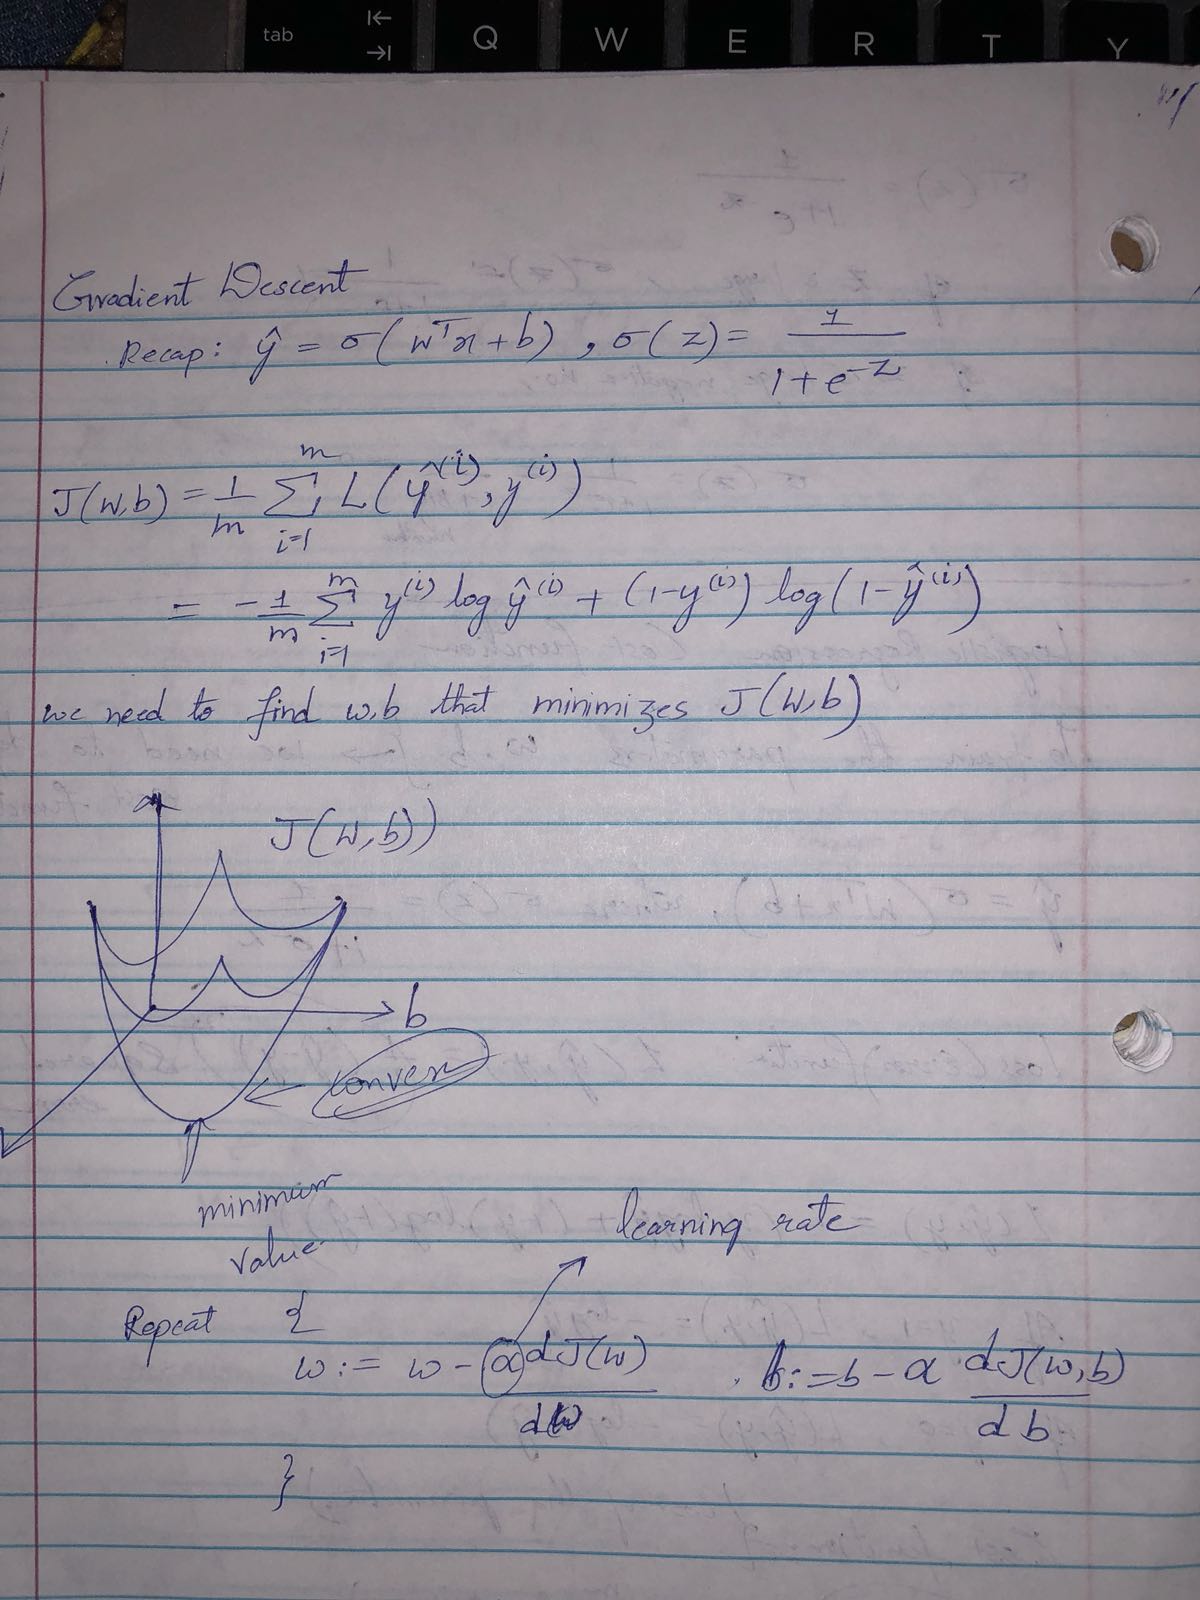 tab
Q W E R T Y
Gradient Descent
Recap: ŷ = σ(wᵀx + b), σ(z) = 1 / (1 + e⁻ᶻ)
J(w,b) = 1/m Σᵢ₌₁ᵐ L(ŷ⁽ⁱ⁾, y⁽ⁱ⁾)
= - 1/m Σᵢ₌₁ᵐ y⁽ⁱ⁾ log ŷ⁽ⁱ⁾ + (1-y⁽ⁱ⁾) log(1-ŷ⁽ⁱ⁾)
we need to find w,b that minimizes J(w,b)
J(w,b))
b
convex
minimum
value
learning rate
Repeat {
w := w - α dJ(w) / dw . b := b - α dJ(w,b) / db
}